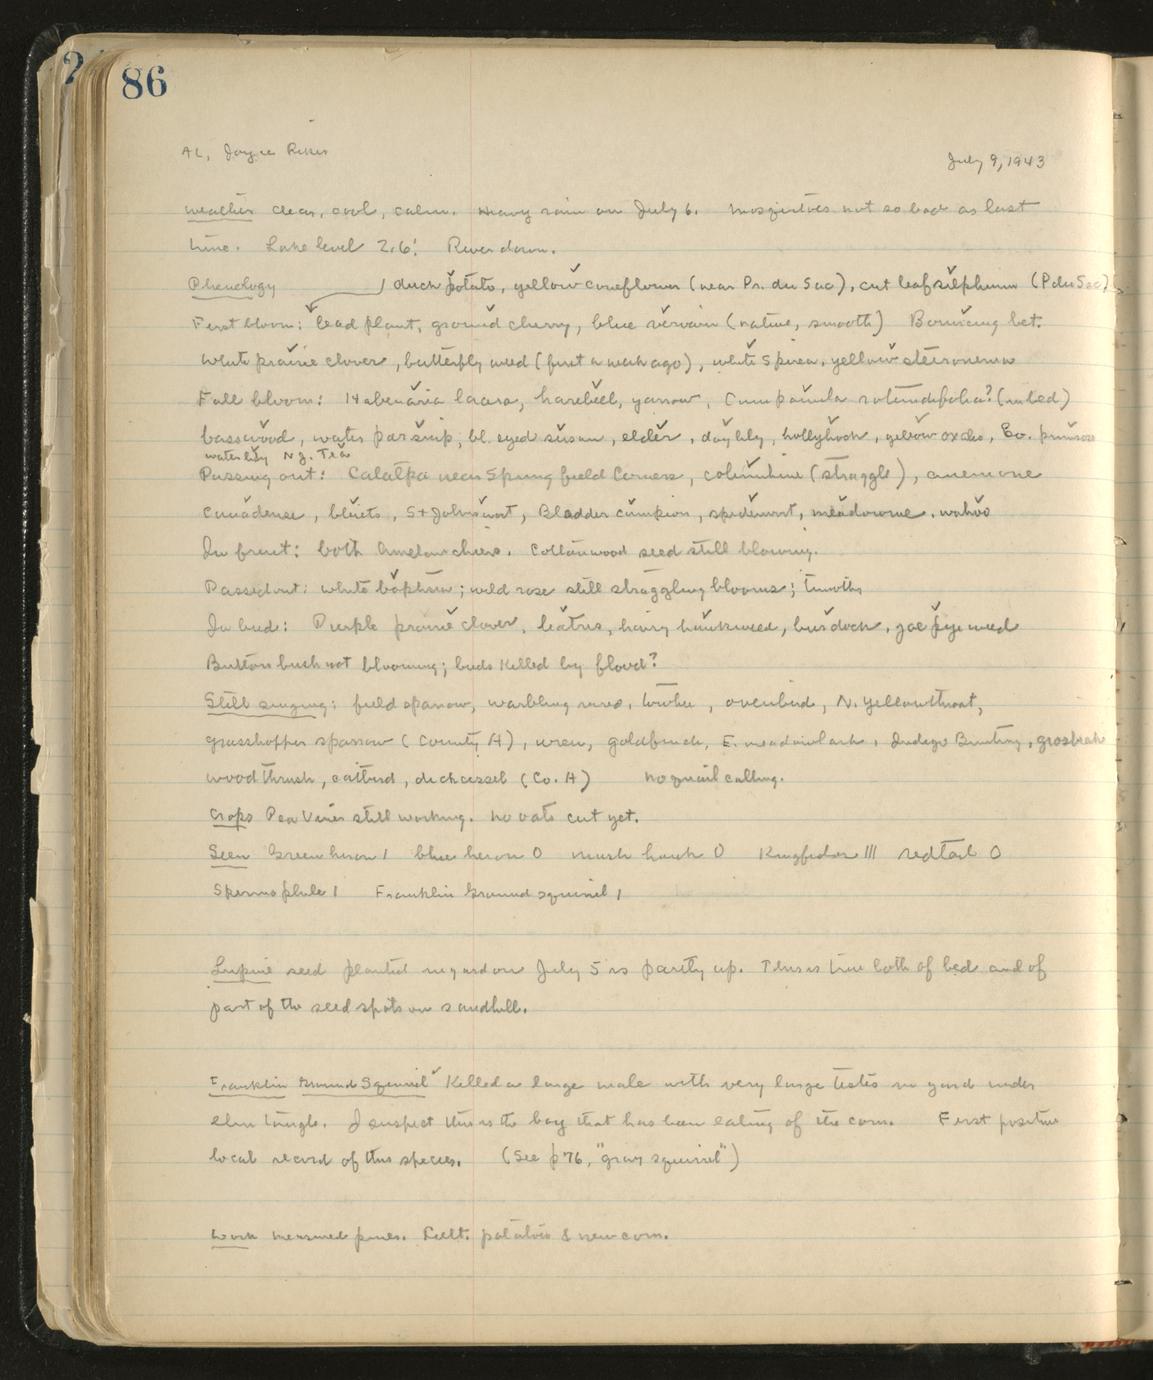 2
86
AL, Joyce Riker
July 9, 1943
Weather clear, cool, calm. Heavy rain on July 6. Mosquitoes not so bad as last
time. Lake level 2.6'. River down.
Phenology duck potato, yellow coneflower (near Pr. du Sac), cut leaf silphium (P du Sac)
First bloom: lead plant, ground cherry, blue vervain (native, smooth) Bouncing bet.
White prairie clover, butterfly weed (first a week ago), white Spirea, yellow steironema
Full bloom: Habenaria lacera, harebell, yarrow, Campanula rotundifolia? (in bed)
basswood, water parsnip, bl. eyed susan, elder, daylily, hollyhock, yellow oxalis, Ev. primrose
waterlily N.J. Tea
Passing out: Catalpa near Springfield Corners, columbine (straggle), anemone
canadense, bluets, St Johnswort, Bladder campion, spiderwort, meadowrue, wahoo
In fruit: both Amelanchiers. Cottonwood seed still blowing.
Passed out: white baptisia; wild rose still straggling blooms; timothy
In bud: Purple prairie clover, liatris, hairy hawkweed, burdock, joe pye weed
Buttonbush not blooming; buds killed by flood?
Still singing: field sparrow, warbling vireo, towhee, ovenbird, N. yellowthroat,
grasshopper sparrow (County H), wren, goldfinch, E. meadowlark, Indigo Bunting, grosbeak
wood thrush, catbird, dickcissel (Co. H) No quail calling.
Crops Pea Viner still working. No oats cut yet.
Seen Green heron 1 blue heron 0 marsh hawk 0 Kingfisher III redtail 0
Spermophile 1 Franklin Ground squirrel 1
Lupine seed planted in yard on July 5 is partly up. This is true both of bed and of
part of the seed spots on sandhill.
Franklin Ground Squirrel Killed a large male with very large testes in yard under
elm tangle. I suspect this is the boy that has been eating of the corn. First positive
local record of this species. (See p 76, "gray squirrel")
Work Measured pines. Cult. potatoes & new corn.